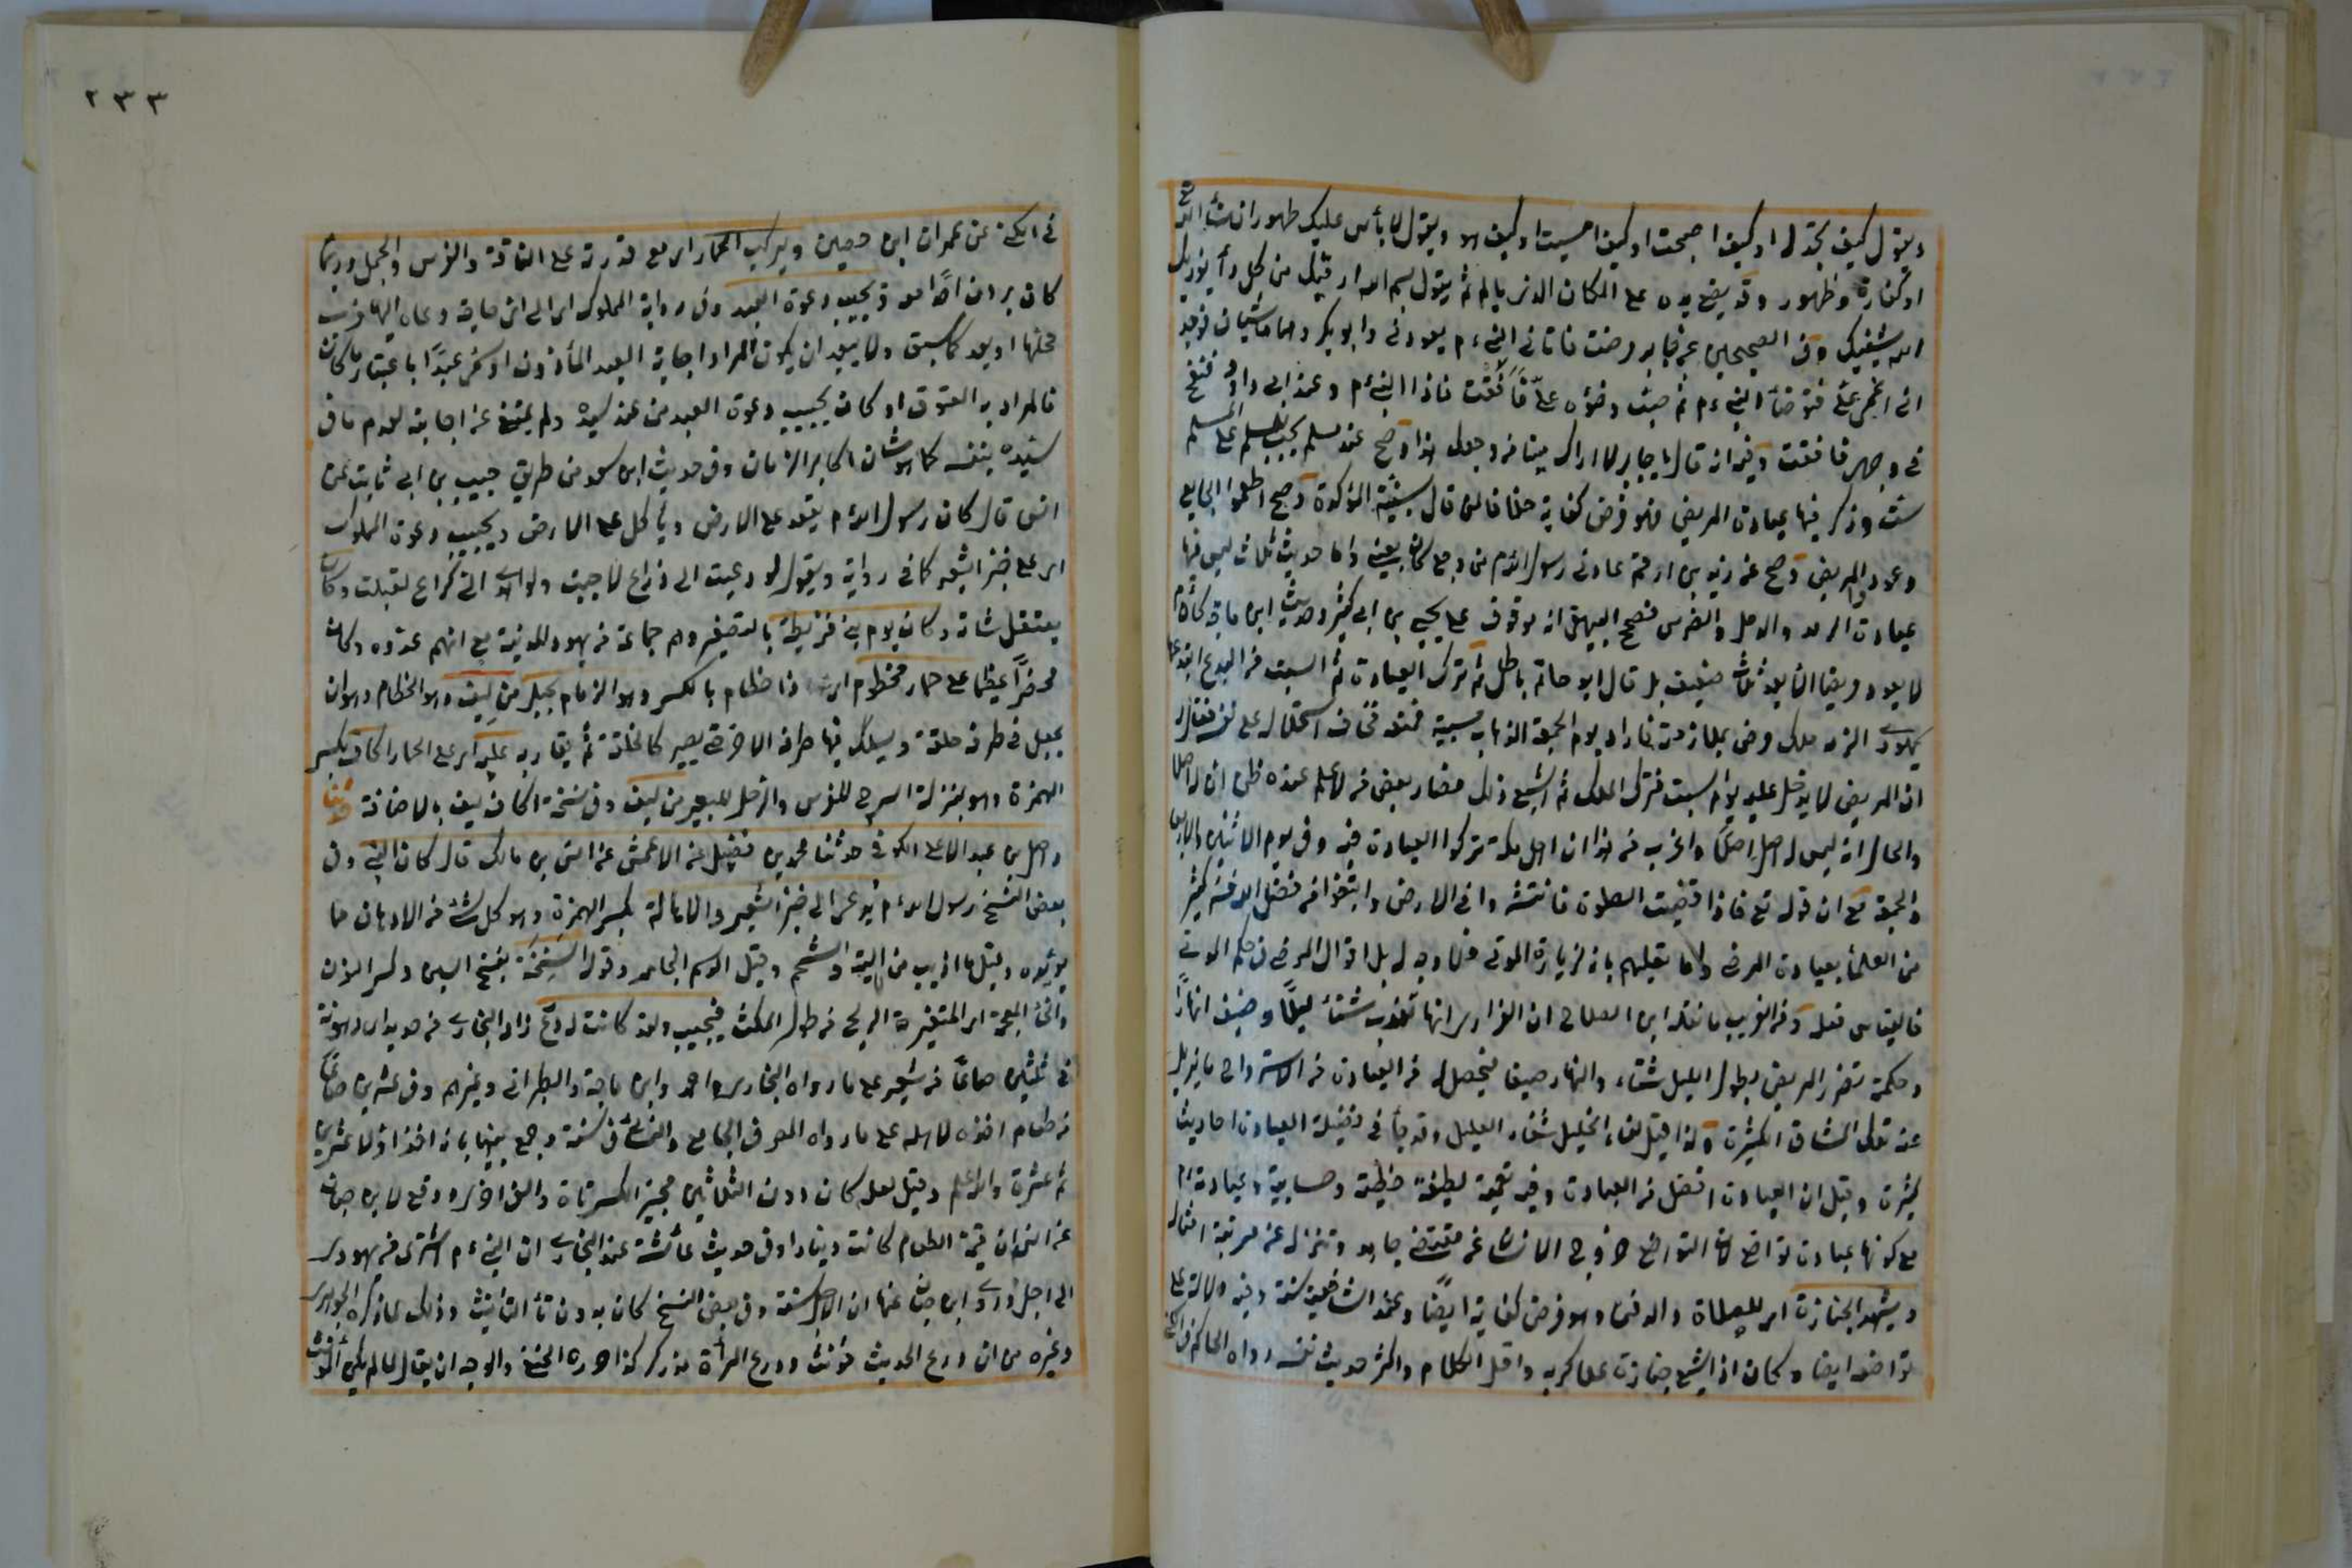 ويقول كيف تجدك او كيف اصبحت او كيف امسيت او كيف هو ويقول لا بأس عليك طهور ان شاء الله تع
او كفارة وطهور وقد يضع يده على المكان الذى يألم ثم يقول بسم الله ارقيك من كل داء يؤذيك
الله يشفيك وفى الصحيحين عن جابر مرضت فاتانى النبى ءم يعودنى وابو بكر وهما ماشيان فوجد
انى اغمى على فتوضأ النبى ءم ثم صب وضوءه علىّ فأفقت فاذا النبى ءم وعند ابى داود فنفخ
فى وجهى فافقت وفيه انه قال يا جابر لا اراك ميتا من وجعك هذا وصح عند مسلم يجب للمسلم على المسلم
ست وذكر فيها عيادة المريض فهو فرض كفاية خلافا لمن قال بسنية المؤكدة وصح اطعموا الجايع
وعودوا المريض وصح عن زيد بن ارقم عادنى رسول الله ءم من وجع كان بعينى واما حديث ثلاث ليس فيها
عيادة الرمد والدمل والضرس فصحح البيهقى انه موقوف على يحيى بن ابى كثير وحديث ابن ماجه كان ءم
لا يعود مريضا الا بعد ثلاث ضعيف بل قال ابو حاتم باطل ثم ترك العيادة ثم السبت من البدع ابتدعه
يهودى الزمه ملك مرض بملازمته فاراد يوم الجمعة الذهاب لسبته فمنعه فخاف استحلاله على نفسه فقال له
ان المريض لا يدخل عليه يوم السبت فترك الملك ثم اشيع ذلك فصار بعض من لا علم عنده ظن ان له اصلا
والحال انه ليس له اصل اصلا واغرب من هذا ان اهل مكة تركوا العيادة فيه وفى يوم الاثنين والاربعا
والجمعة مع ان قوله تع فاذا قضيت الصلوة فانتشروا فى الارض وابتغوا من فضل الله فسره كثير
من العلماء بعيادة المرضى واما تعليلهم بانه لزيارة الموتى فلا وجه له بل اقوال المرضى فى حكم الموتى
فالقياس فعله ومن الغريب ما نقله ابن الصلاح ان الفزارى انها تندب شتاء ليلا وصيفا نهارا
وحكمة تضرر المريض بطول الليل شتاء والنهار صيفا فيحصل له من العيادة من الاسترواح ما يزيل
عنه تلك المشاق الكثيرة ولذا قيل لقاء الخليل شفاء العليل وقد جاء فى فضيلة العيادة احاديث
كثيرة وقيل ان العيادة افضل من العبادة وفيه تعمية لطيفة خطية وحسابية وعيادته ءم
مع كونها عبادة تواضع لان التواضع خروج الانسان عن مقتضى جاهه وتنزله عن مرتبة امثاله
ويشهد الجنازة اى للصلاة والدفن وهو فرض كفاية ايضا وعند الشافعية سنة وفيه دلالة على
تواضعه ايضا وكان اذا شيع جنازة علا كربه واقل الكلام واكثر حديث نفسه رواه الحاكم فى الكنى
٢٣٣
فى الكنى عن عمران ابن حصين ويركب الحمار اى مع قدرته على الناقة والفرس والجمل وربما
كان يردف احدا معه ويجيب دعوة العبد وفى رواية المملوك اى الى اى حاجة دعاه اليها قرب
محلها او بعد كما سبق ولا يبعد ان يكون المراد اجابة العبد المأذون او سمى عبدا باعتبار ما كان
فالمراد به المعتوق او كان يجيب دعوة العبد من عند سيده ولم يمتنع عن اجابته لعدم ما فى
سيده بنفسه كما هو شان اكابر الزمان وفى حديث ابن سعد من طريق حبيب بن ابى ثابت عن
انس قال كان رسول الله ءم يقعد على الارض ويأكل على الارض ويجيب دعوة المملوك
اى على خبز الشعير كما فى رواية ويقول لو دعيت الى ذراع لاجبت ولو اهدى الى كراع لقبلت وكان
يعتقل شاته وكان يوم بنى قريظة بالتصغير وهم جماعة من يهود المدينة مع انهم عدوه وكان
محضرا عظيما على حمار مخطوم اى ذا خظام بالكسر وهو الزمام بحبل من ليف وهو الخظام وهو ان
يجعل فى طرفه حلقة ويسلك فيها طرفه الاخر حتى يصير كالحلقة ثم يقاد به عليه اى على الحمار اكاف بكسر
الهمزة وهو بمنزلة السرج للفرس والرحل للبعير من ليف وفى نسخة اكاف ليف بالاضافة حدثنا
واصل بن عبد الاعلى الكوفى حدثنا محمد بن فضيل عن الاعمش عن انس بن مالك قال كان النبى وفى
بعض النسخ رسول الله ءم يدعى الى خبز الشعير والاهالة بكسر الهمزة وهو كل شئ من الادهان مما
يؤتدم وقيل ما اذيب من الية او شحم وقيل الدسم الجامد وقوله السنخة بفتح السين وكسر النون
والخاء المعجمة اى المتغيرة الريح من طول المكث فيجيب ولقد كانت له درع زاد البخارى من حديد اى مرهونة
فى ثلثين صاعا من شعير على ما رواه البخارى واحمد وابن ماجة والطبرانى وغيرهم وفى عشرين صاعا
من طعام اخذه لاهله على ما رواه المصنف فى الجامع والنسائى فى سننه وجمع بينهما بانه اخذ اولا عشرين
ثم عشرة والله اعلم وقيل لعله كان دون الثلاثين فجبر الكسر تارة والغى اخرى ووقع لابن حبان
عن انس ان قيمة الطعام كانت دينارا وفى حديث عائشة عند البخارى ان النبى ءم اشترى من يهودى
الى اجل وروى ابن حبان عنها ان الاجل سنة وفى بعض النسخ كان بدون تاء التانيث وذلك لما ذكره الجوهرى
وغيره من ان درع الحديث مؤنث ودرع المرأة مذكر كذا ذكره الحنفى والوجه ان يقال لما لم يكن المؤنث